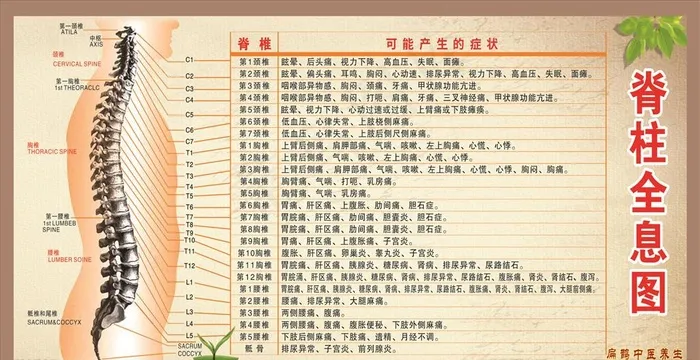 脊椎 可能产生的症状
第一颈椎
ATILA
中枢
AXIS
颈椎
CERVICAL SPINE
第一胸椎
1st THEORACLC
胸椎
THORACIC SPINE
第一腰椎
1st LUMBEB
SPINE
腰椎
LUMBER SOINE
骶椎和尾椎
SACRUM&COCCYX
C1
C2
C3
C4
C5
C6
C7
T1
T2
T3
T4
T5
T6
T7
T8
T9
T10
T11
T12
L1
L2
L3
L4
L5
SACRUM
COCCYX
第1颈椎 眩晕、后头痛、视力下降、高血压、失眠、面瘫。
第2颈椎 眩晕、偏头痛、耳鸣、胸闷、心动速、排尿异常、视力下降、高血压、失眠、面瘫。
第3颈椎 咽喉部异物感、胸闷、颈痛、牙痛、甲状腺功能亢进。
第4颈椎 咽喉部异物感、胸闷、打呃、肩痛、牙痛、三叉神经痛、甲状腺功能亢进。
第5颈椎 眩晕、视力下降、心动过速或过缓、上臂痛或下肢瘫痪。
第6颈椎 低血压、心律失常、上肢桡侧麻痛。
第7颈椎 低血压、心律失常、上肢后侧尺侧麻痛。
第1胸椎 上臂后侧痛、肩胛部痛、气喘、咳嗽、左上胸痛、心慌、心悸。
第2胸椎 上臂后侧痛、气喘、咳嗽、左上胸痛、心慌、心悸。
第3胸椎 上臂后侧痛、肩胛部痛、气喘、咳嗽、左上胸痛、心慌、心悸、胸闷、胸痛。
第4胸椎 胸臂痛、气喘、打呃、乳房痛。
第5胸椎 胸臂痛、气喘、乳房痛。
第6胸椎 胃痛、肝区痛、上腹胀、肋间痛、胆石症。
第7胸椎 胃脘痛、肝区痛、肋间痛、胆囊炎、胆石症。
第8胸椎 胃脘痛、肝区痛、肋间痛、胆囊炎、胆石症。
第9胸椎 胃痛、肝区痛、上腹胀痛、子宫炎。
第10胸椎 腹胀、肝区痛、卵巢炎、睾丸炎、子宫炎。
第11胸椎 胃脘痛、肝区痛、胰腺炎、糖尿病、肾病、排尿异常、尿路结石。
第12胸椎 胃脘涌、肝区痛、胰腺炎、糖尿病、肾病、排尿异常、尿路结石、腹胀痛、肾炎、肾结石、腹泻。
第1腰椎 胃脘痛、肝区痛、胰腺炎、糖尿病、肾病、排尿异常、尿路结石、腹胀痛、肾炎、肾结石、腹泻、大腿前侧痛。
第2腰椎 腰痛、排尿异常、大腿麻痛。
第3腰椎 两侧腰痛、腹痛。
第4腰椎 两侧腰痛、腹痛、腹胀便秘、下肢外侧麻痛。
第5腰椎 下肢后侧麻痛、下腹痛、遗精、月经不调。
骶骨 排尿异常、子宫炎、前列腺炎。
脊柱全息图
扁鹊中医养生